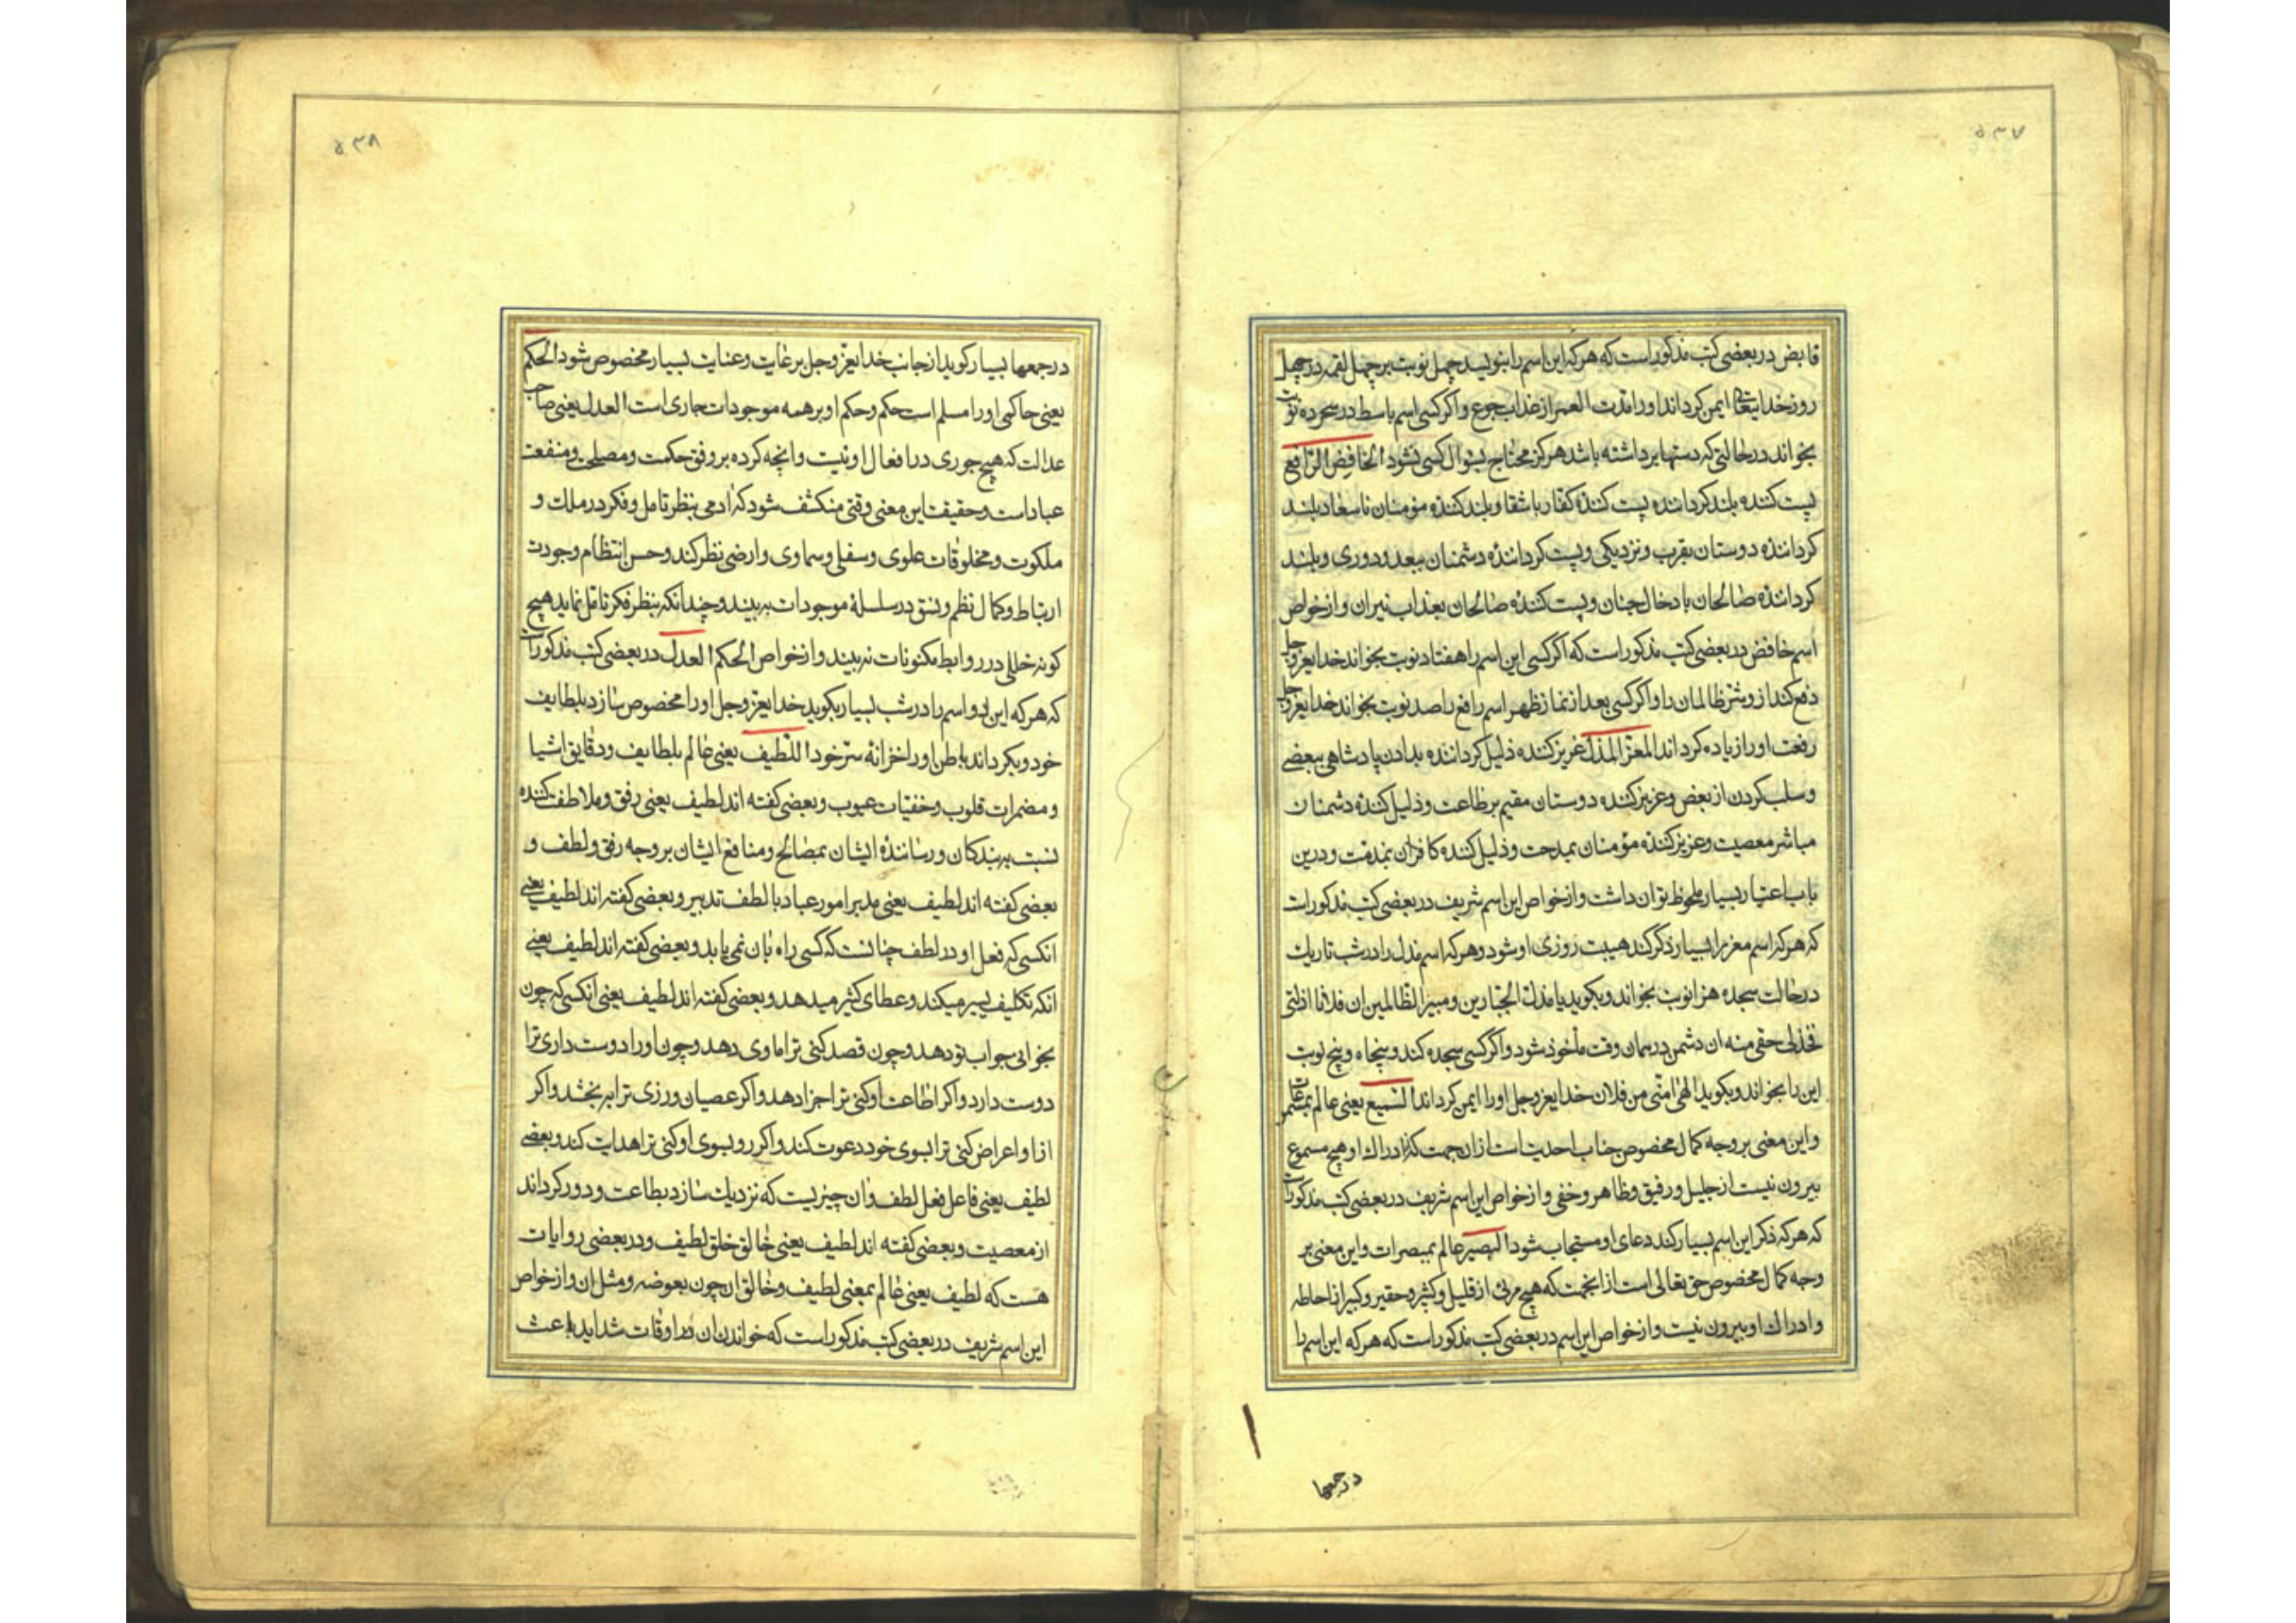 ۵۳۷
قابض در بعضی کتب مذکور است که هر که این اسم را بنویسد چهل نوبت بر چهل لقمه در چهل
روز خدایتعالی ایمن کرداند او را مدت العمر از عذاب جوع و اکر کسی اسم باسط در سحر ده نوبت
بخواند در حالتی که دستها برداشته باشد هرکز محتاج بسوال کسی نشود الخافض الرافع
پست کننده بلند کرداننده پست کنندهٔ کفار باشقا و بلند کننده مؤمنان باسعاد بلند
کردانندهٔ دوستان بقرب و نزدیکی و پست کردانندهٔ دشمنان ببعد و دوری و بلند
کردانندهٔ صالحان بادخال جنان و پست کنندهٔ طالحان بعذاب نیران و از خواص
اسم خافض در بعضی کتب مذکور است که اکر کسی این اسم را هفتاد نوبت بخواند خدایعزوجل
دفع کند از و شر ظالمان را و اکر کسی بعد از نماز ظهر اسم رافع را صد نوبت بخواند خدایعزوجل
رفعت او را زیاده کرداند المعز المذل عزیز کننده ذلیل کرداننده بدادن پادشاهی ببعضی
و سلب کردن از بعض و عزیز کننده دوستان مقیم بر طاعت و ذلیل کنندهٔ دشمنان
مباشر معصیت و عزیز کنندهٔ مؤمنان بمدحت و ذلیل کننده کافران بمذمت و درین
باب اعتبار بسیار ملحوظ توان داشت و از خواص این اسم شریف در بعضی کتب مذکور است
که هر که اسم معز را بسیار ذکر کند هیبت روزی او شود و هر که اسم مذل را در شب تاریک
در حالت سجده هزار نوبت بخواند و بکوید یا مذل الجبارین و مبیر الظالمین ان فلانا اذلنی
فخذ لی حقی منه ان دشمن در همان وقت مأخوذ شود و اکر کسی سجده کند و پنجاه و پنج نوبت
این را بخواند و بکوید الهی امنی من فلان خدایعزوجل او را ایمن کرداند السمیع یعنی عالم بمسموعات
و این معنی بر وجه کمال مخصوص جناب احدیت است از ان جهت که از ادراک او هیچ مسموع
بیرون نیست از جلیل و رقیق و ظاهر و خفی و از خواص این اسم شریف در بعضی کتب مذکور است
که هر که ذکر این اسم بسیار کند دعای او مستجاب شود البصیر عالم بمبصرات و این معنی بر
وجه کمال مخصوص حق تعالی است از انجهت که هیچ مرئی از قلیل و کثیر و حقیر و کبیر از احاطه
و ادراک او بیرون نیست و از خواص این اسم در بعضی کتب مذکور است که هر که این اسم را
در جمعها
۵۳۸
در جمعها بسیار کوید از جانب خدایعزوجل برعایت و عنایت بسیار مخصوص شود الحکم
یعنی حاکمی او را مسلم است حکم و حکم او بر همه موجودات جاری است العدل یعنی صاحب
عدالت که هیچ جوری در افعال او نیست و انچه کرده بر وفق حکمت و مصلحت و منفعت
عباد است و حقیقت این معنی وقتی منکشف شود که ادمی بنظر تامل و فکر در ملک و
ملکوت و مخلوقات علوی و سفلی و سماوی و ارضی نظر کند و حسن انتظام و جودت
ارتباط و کمال نظم و نسق در سلسلهٔ موجودات به بیند و چندانکه بنظر فکر تامل نماید هیچ
کونه خللی در روابط مکنونات نه بیند و از خواص الحکم العدل در بعضی کتب مذکور است
که هر که این دو اسم را در شب بسیار بکوید خدایعزوجل او را مخصوص سازد بلطایف
خود و بکرداند باطن او را خزانهٔ سر خود اللطیف یعنی عالم بلطایف و دقایق اشیا
و مضمرات قلوب و خفیات عیوب و بعضی کفته اند لطیف یعنی رفق و ملاطفت کننده
نسبت به بندکان و رسانندهٔ ایشان بمصالح و منافع ایشان بر وجه رفق و لطف و
بعضی کفته اند لطیف یعنی مدبر امور عباد بالطف تدبیر و بعضی کفته اند لطیف یعنی
انکسی که فعل او در لطف چنانست که کسی راه بان نمی یابد و بعضی کفته اند لطیف یعنی
انکه تکلیف یسیر میکند و عطای کثیر میدهد و بعضی کفته اند لطیف یعنی انکسی که چون
بخوانی جواب تو دهد و چون قصد کنی ترا ماوی دهد و چون او را دوست داری ترا
دوست دارد و اکر اطاعت او کنی ترا جزا دهد و اکر عصیان ورزی ترا به بخشد و اکر
از او اعراض کنی ترا بسوی خود دعوت کند و اکر رو بسوی او کنی ترا هدایت کند و بعضی
لطیف یعنی فاعل فعل لطف و ان چیزیست که نزدیک سازد بطاعت و دور کرداند
از معصیت و بعضی کفته اند لطیف یعنی خالق خلق لطیف و در بعضی روایات
هست که لطیف یعنی عالم بمعنی لطیف و خالق ان چون بعوضه و مثل ان و از خواص
این اسم شریف در بعضی کتب مذکور است که خواندن ان در اوقات شداید باعث